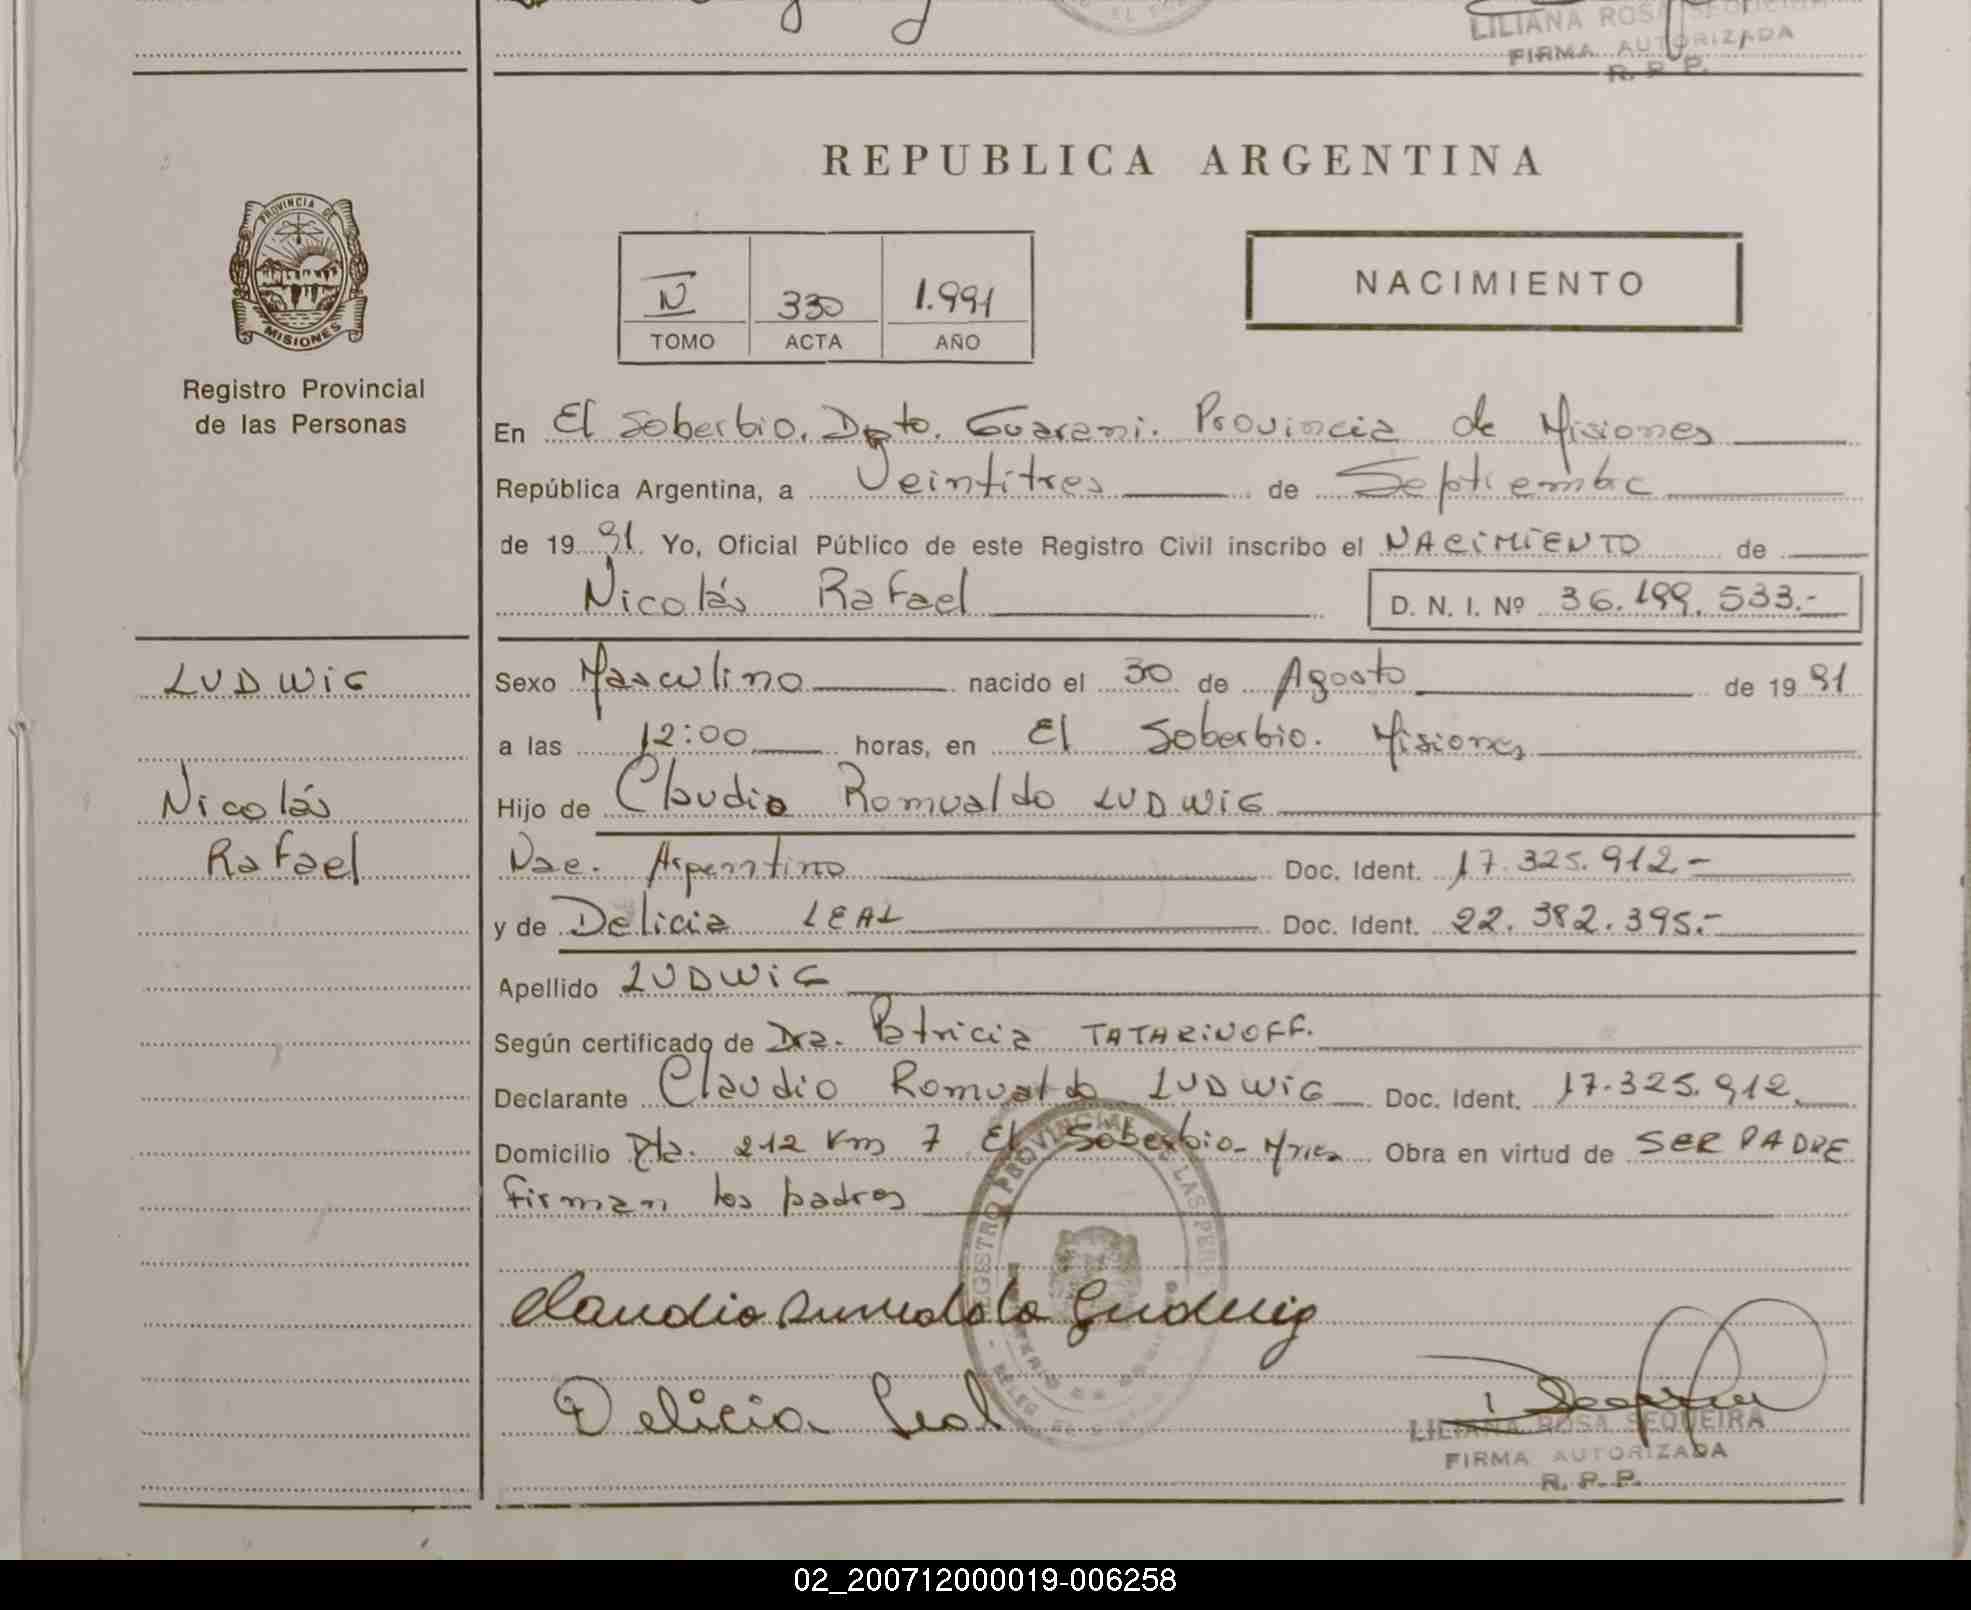 LILIANA ROSA SEQUEIRA
FIRMA AUTORIZADA
R. P. P.
REPUBLICA ARGENTINA
PROVINCIA DE
MISIONES
Registro Provincial
de las Personas
IV 330 1.991
TOMO ACTA AÑO
NACIMIENTO
En El Soberbio. Dpto. Guarani. Provincia de Misiones
República Argentina, a Veintitres de Septiembre
de 1991. Yo, Oficial Público de este Registro Civil inscribo el NACIMIENTO de
Nicolás Rafael D. N. I. Nº 36.199.533.-
LUDWIG
Nicolás
Rafael
Sexo Masculino nacido el 30 de Agosto de 1991
a las 12:00 horas, en El Soberbio. Misiones
Hijo de Claudio Romualdo LUDWIG
Nac. Argentino Doc. Ident. 17.325.912-
y de Delicia LEAL Doc. Ident. 22.382.395.-
Apellido LUDWIG
Según certificado de Dra. Patricia TATARINOFF.
Declarante Claudio Romualdo LUDWIG Doc. Ident. 17.325.912.
Domicilio Rta. 212 Km 7 El Soberbio- Mnes Obra en virtud de SER PADRE
Firman los padres
Claudio Rumaldo Ludwig
Delicia Leal
REGISTRO PROVINCIAL DE LAS PERS
LILIANA ROSA SEQUEIRA
FIRMA AUTORIZADA
R. P. P.
02_200712000019-006258